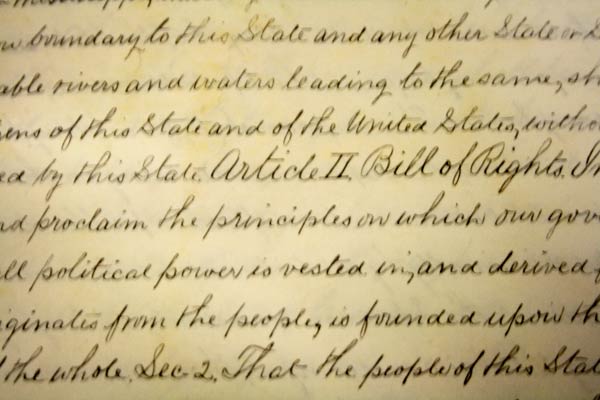 w boundary to this State and any other State or
able rivers and waters leading to the same, sh
zens of this State and of the United States, witho
ed by this State. Article II. Bill of Rights. In
nd proclaim the principles on which our gov
ll political power is vested in, and derived
iginates from the people, is founded upon th
the whole. Sec 2. That the people of this Stat